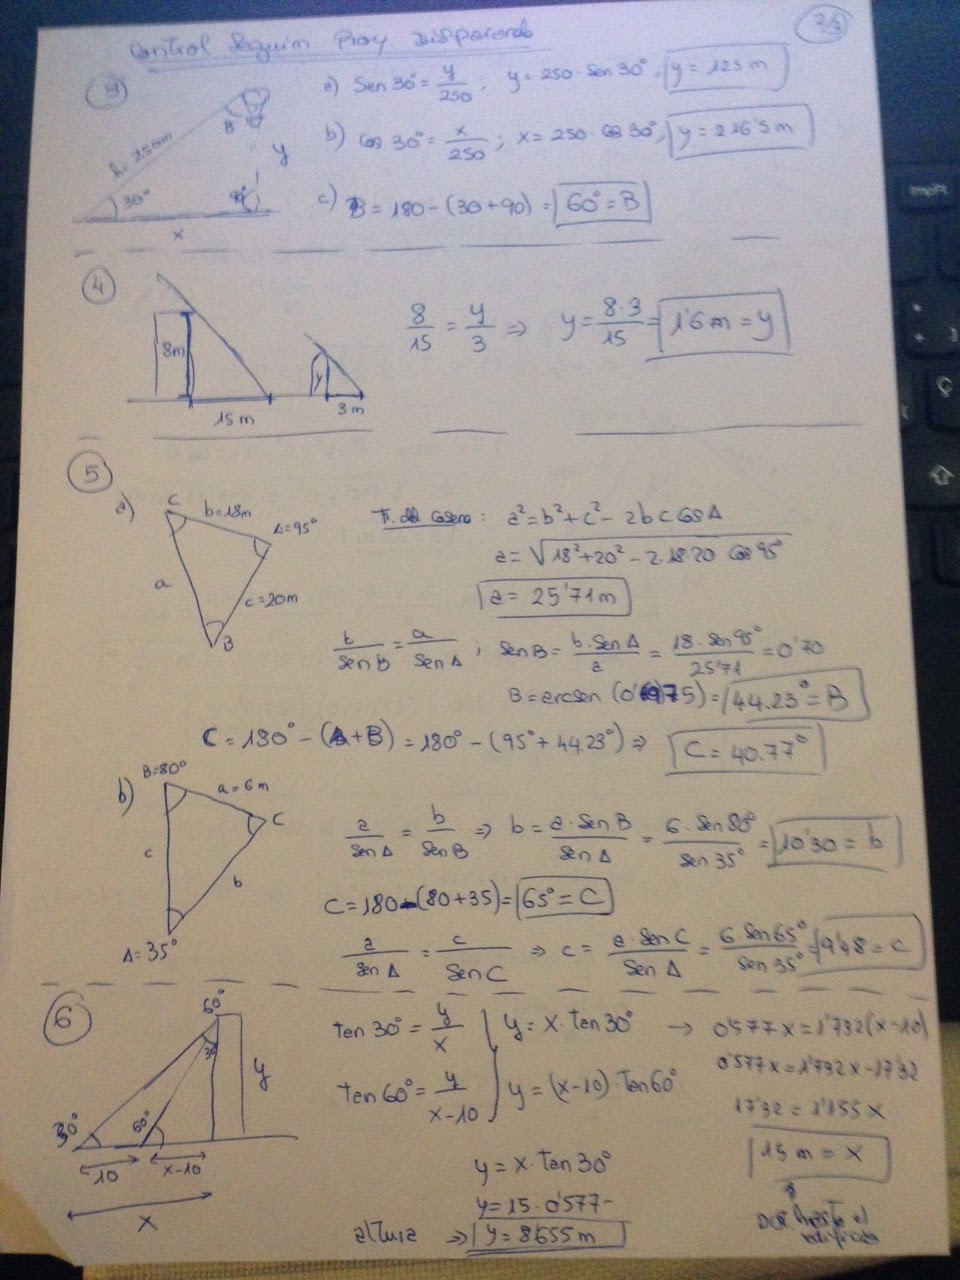 Control Seguim. Proy. Disparando
2/3
3
a) Sen 30° = y/250 ; y = 250 · Sen 30° ; y = 125 m
b) Cos 30° = x/250 ; x = 250 · Cos 30° ; y = 216'5 m
c) B = 180 - (30 + 90) = 60° = B
h = 250m
30°
B
90°
y
x
4
8/15 = y/3 => y = 8·3/15 = 1'6 m = y
8m
y
15 m
3 m
5
a)
C
b = 18m
A = 95°
a
c = 20m
B
T. del Coseno : a² = b² + c² - 2bc Cos A
a = √18² + 20² - 2·18·20 Cos 95°
a = 25'71m
b/Sen B = a/Sen A ; Sen B = b·Sen A/a = 18·Sen 95°/25'71 = 0'70
B = arcsen (0'6975) = 44.23° = B
C = 180° - (A + B) = 180° - (95° + 44.23°) => C = 40.77°
b)
B = 80°
a = 6 m
C
c
b
A = 35°
a/Sen A = b/Sen B => b = a·Sen B/Sen A = 6·Sen 80°/Sen 35° = 10'30 = b
C = 180 - (80 + 35) = 65° = C
a/Sen A = c/Sen C => c = a·Sen C/Sen A = 6·Sen 65°/Sen 35° = 9'48 = c
6
60°
30°
y
30°
60°
10
x-10
x
tan 30° = y/x } y = x · tan 30° → 0'577x = 1'732(x-10)
tan 60° = y/x-10 } y = (x-10) · tan 60°
0'577x = 1'732x - 17'32
17'32 = 1'155 x
15 m = x
Dist. hasta el edificio
y = x · tan 30°
y = 15 · 0'577
altura => y = 8'655 m